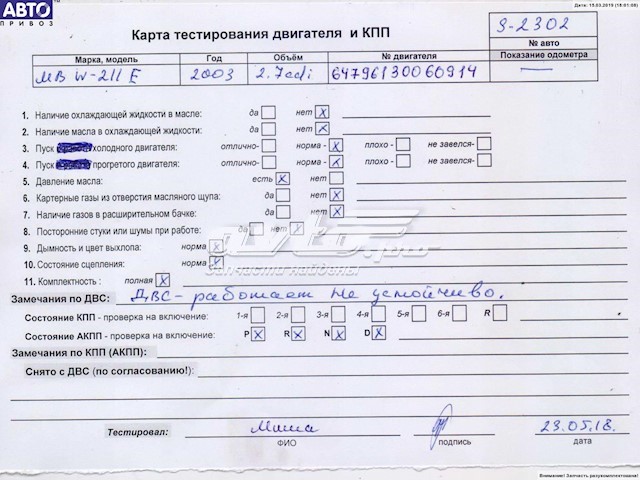 АВТО
ПРИВОЗ
Дата: 15.03.2019 (18:01:08)
Карта тестирования двигателя и КПП
S-2302
№ авто
Марка, модель Год Объём № двигателя Показание одометра
MB W-211 E 2003 2.7cdi 64796130060914 —
1. Наличие охлаждающей жидкости в масле: да нет X
2. Наличие масла в охлаждающей жидкости: да нет X
3. Пуск холодного двигателя: отлично- норма - X плохо - не завелся-
4. Пуск прогретого двигателя: отлично- норма - X плохо - не завелся-
5. Давление масла: есть X нет
6. Картерные газы из отверстия масляного щупа: да нет X
7. Наличие газов в расширительном бачке: да нет X
8. Посторонние стуки или шумы при работе: да нет X
9. Дымность и цвет выхлопа: норма X
10. Состояние сцепления: норма X
11. Комплектность : полная X
Запчасти найдены
Замечания по ДВС: ДВС - работает не устойчиво.
Состояние КПП - проверка на включение: 1-я 2-я 3-я 4-я 5-я 6-я R
Состояние АКПП - проверка на включение: P X R X N X D X
Замечания по КПП (АКПП):
Снято с ДВС (по согласованию!):
Тестировал: Миша 23.05.18.
ФИО подпись дата
Внимание! Запчасть разукомплектована!